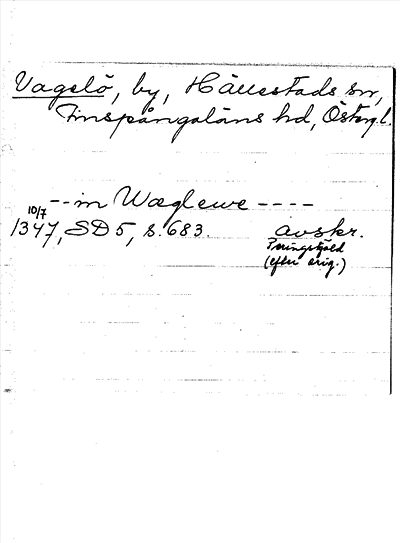 Vagelö, by, Hällestads sn,
Finspångaläns hd, Österg.l.
-- in Wæglewe ----
10/7
1347, SD 5, s. 683. avskr.
Peringskjöld
(efter orig.)